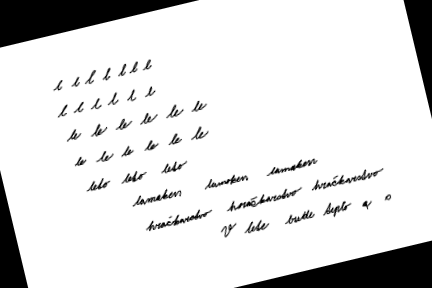 l l l l l l l
l l l l l l
le le le le le le
le le le le le le
lebo lebo lebo
lamaken lamaken lamaken
hračkarstvo hračkarstvo hračkarstvo
V lete bude teplo a o